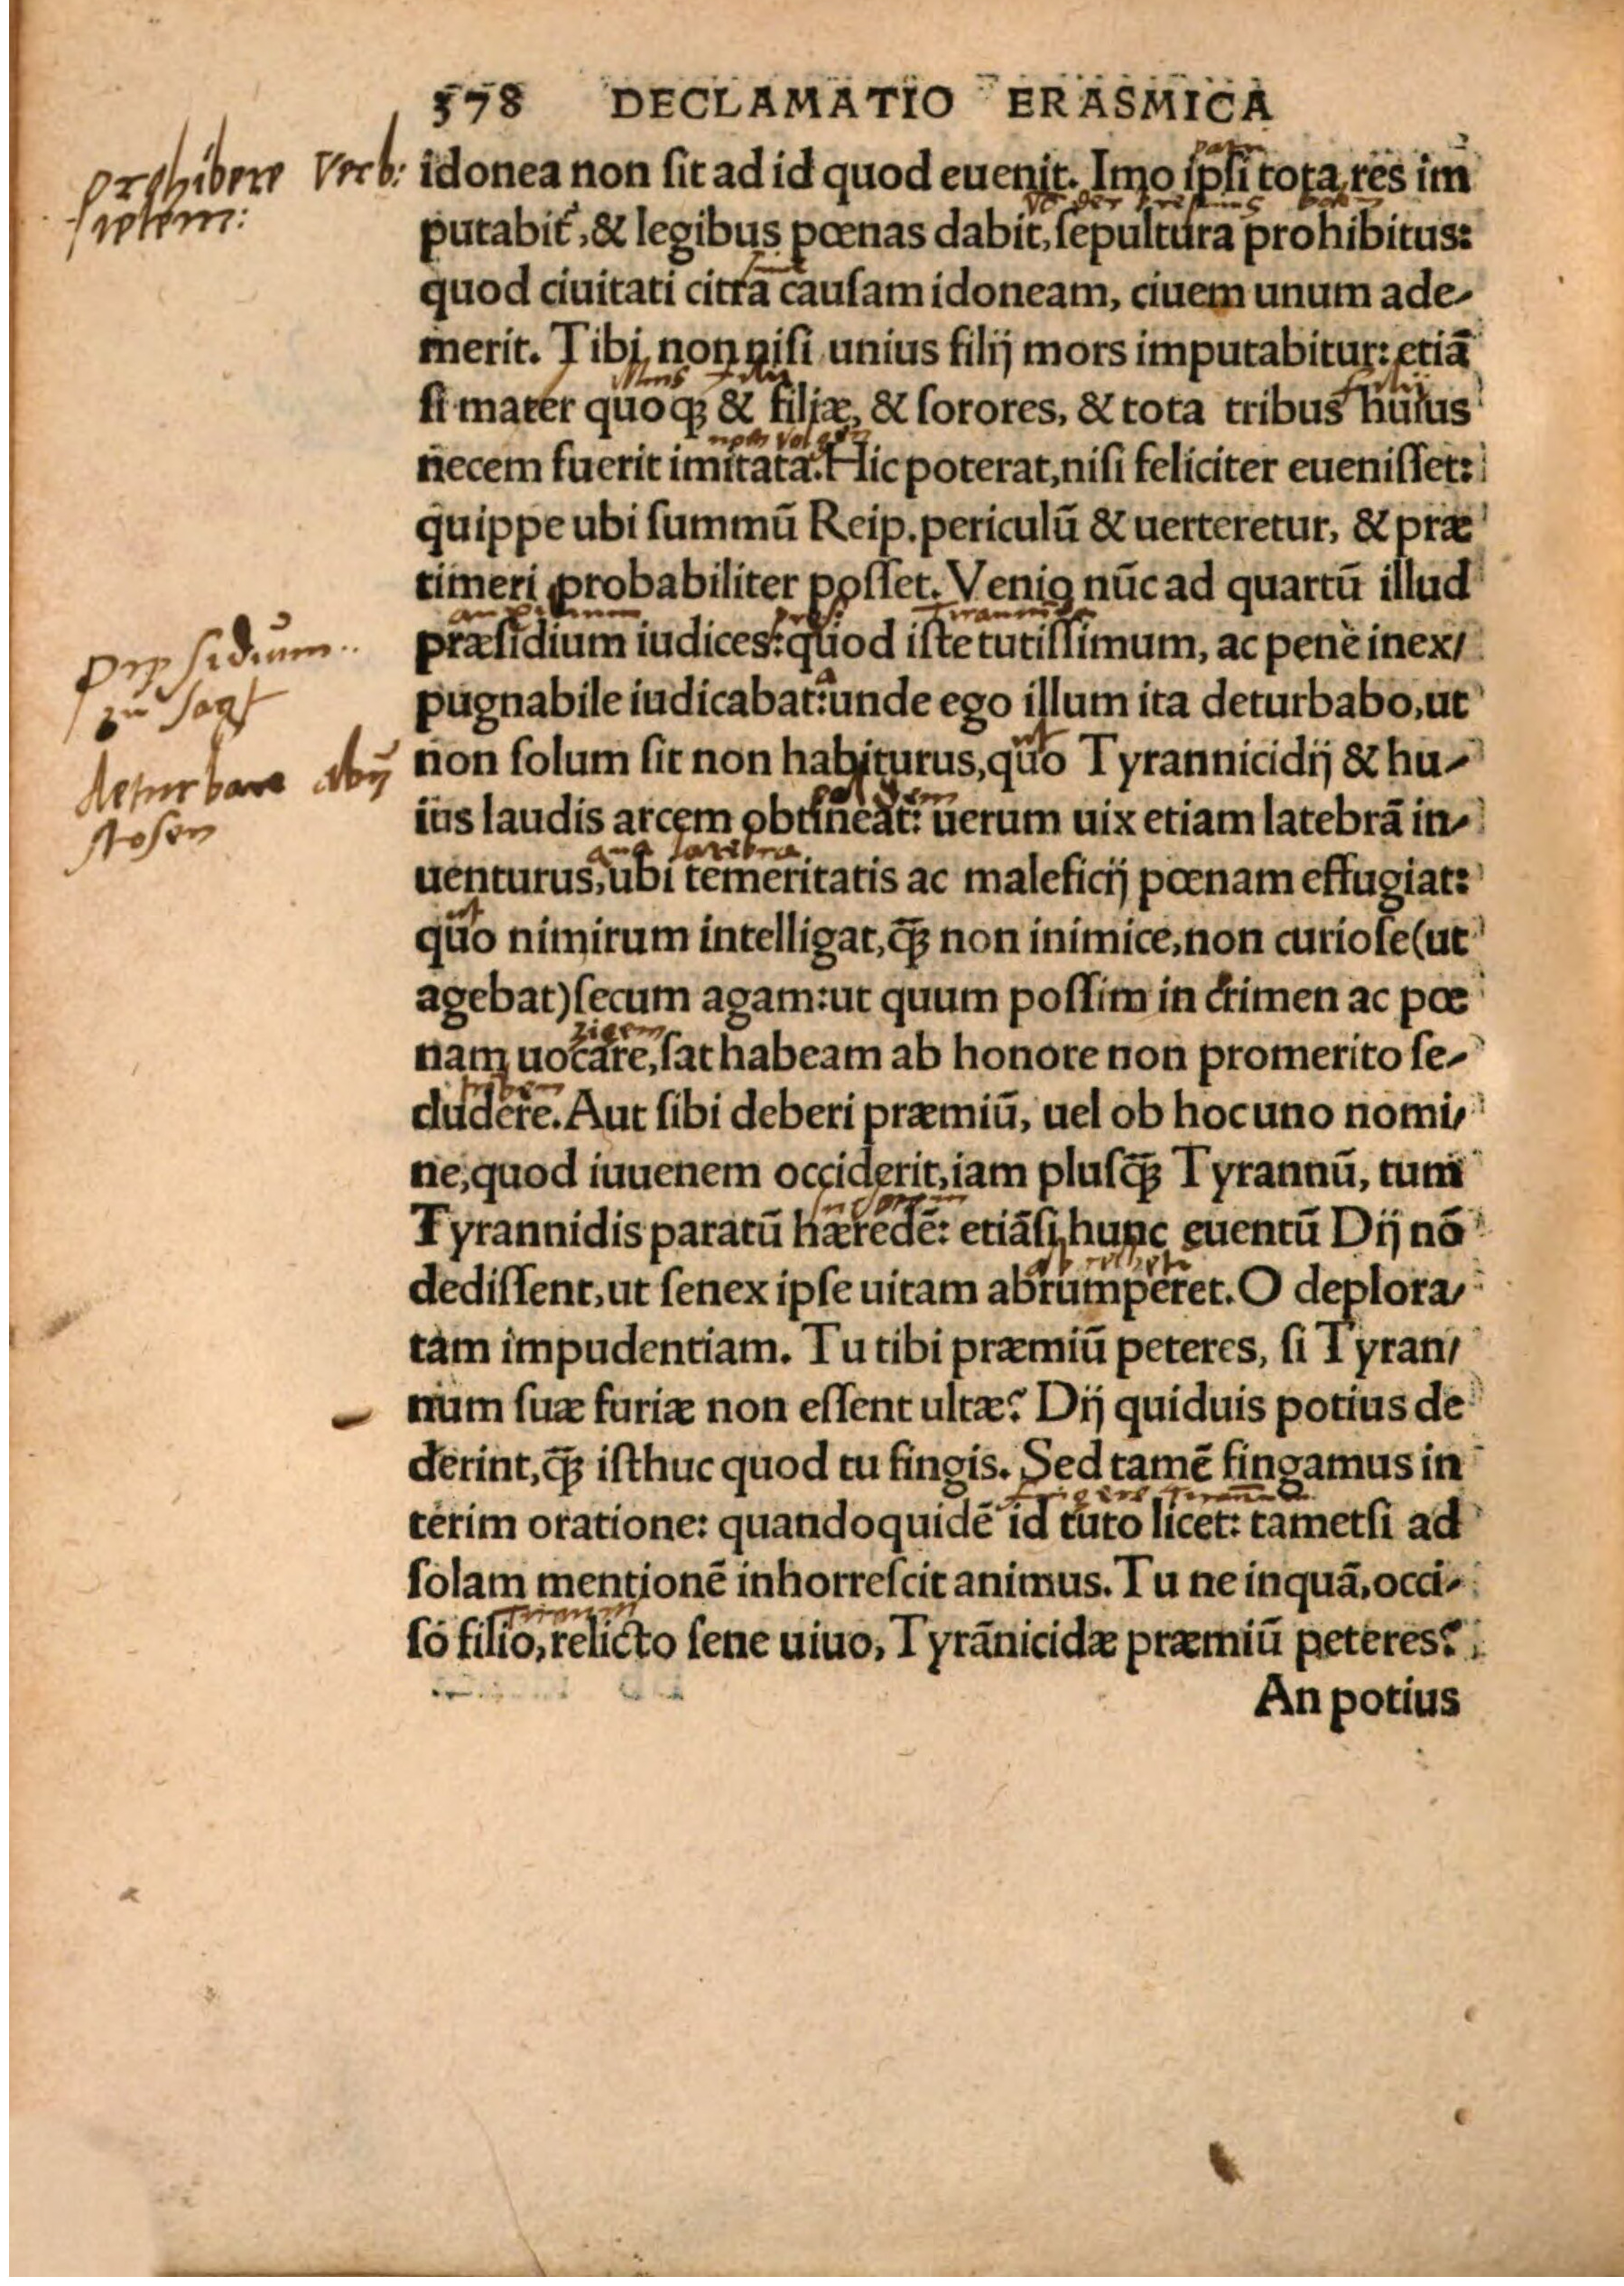 578 DECLAMATIO ERASMICA
prohibere Verb:
idonea non ſit ad id quod euenit. Imo ipſi tota res im
putabit᷑, & legibus pœnas dabit, ſepultura prohibitus:
quod ciuitati citra cauſam idoneam, ciuem unum ade-
merit. Tibi non niſi unius filij mors imputabitur: etiā
ſi mater quoqꝫ & filiæ, & ſorores, & tota tribus huius
necem fuerit imitata. Hic poterat, niſi feliciter eueniſſet:
quippe ubi ſummū Reip. periculū & uerteretur, & præ
timeri probabiliter poſſet. Venio nūc ad quartū illud
præſidium iudices: quod iſte tutiſſimum, ac penè inex/
pugnabile iudicabat: unde ego illum ita deturbabo, ut
non ſolum ſit non habiturus, quo Tyrannicidij & hu-
ius laudis arcem obtineat: uerum uix etiam latebrā in-
uenturus, ubi temeritatis ac maleficij pœnam effugiat:
quo nimirum intelligat, q̄ꝫ non inimice, non curioſe (ut
agebat) ſecum agam: ut quum poſſim in crimen ac pœ
nam uocare, ſat habeam ab honore non promerito ſe-
cludere. Aut ſibi deberi præmiū, uel ob hoc uno nomi/
ne, quod iuuenem occiderit, iam pluſq̄ꝫ Tyrannū, tum
Tyrannidis paratū hæredē: etiāſi hunc euentū Dij nō
dediſſent, ut ſenex ipſe uitam abrumperet. O deplora/
tam impudentiam. Tu tibi præmiū peteres, ſi Tyran/
num ſuæ furiæ non eſſent ultæ? Dij quiduis potius de
derint, q̄ꝫ iſthuc quod tu fingis. Sed tamē fingamus in
terim oratione: quandoquidē id tuto licet: tametſi ad
ſolam mentionē inhorreſcit animus. Tu ne inquā, occi-
ſo filio, relicto ſene uiuo, Tyrānicidæ præmiū peteres?
An potius
præſidium
deturbare